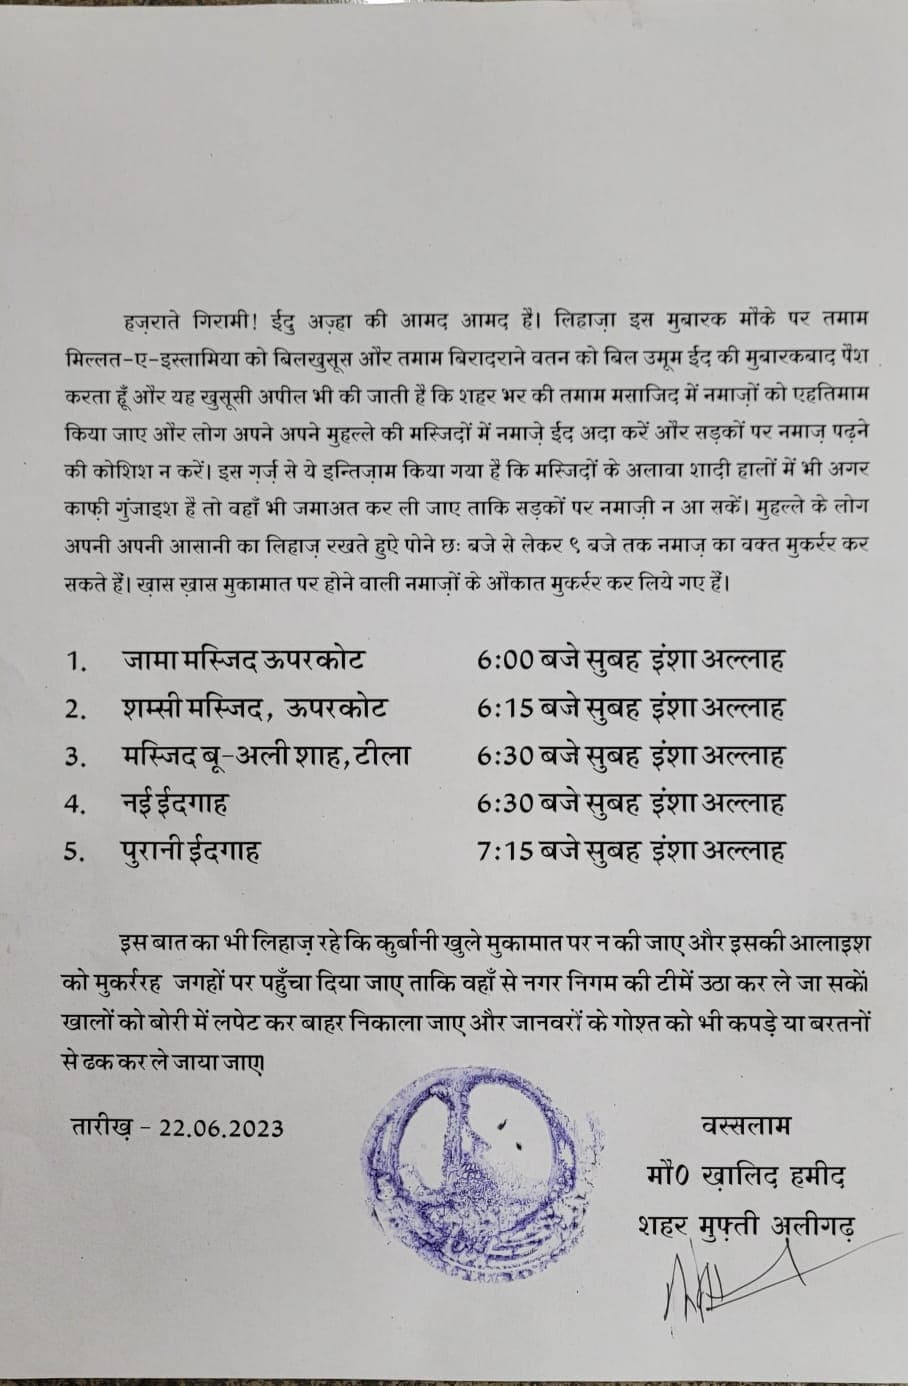 हज़राते गिरामी! ईदु अज़्हा की आमद आमद है। लिहाज़ा इस मुबारक मौके पर तमाम
मिल्लत-ए-इस्लामिया को बिलखुसूस और तमाम बिरादराने वतन को बिल उमूम ईद की मुबारकबाद पैश
करता हूँ और यह खुसूसी अपील भी की जाती है कि शहर भर की तमाम मसाजिद में नमाज़ों को एहतिमाम
किया जाए और लोग अपने अपने मुहल्ले की मस्जिदों में नमाज़े ईद अदा करें और सड़कों पर नमाज़ पढ़ने
की कोशिश न करें। इस गर्ज़ से ये इन्तिज़ाम किया गया है कि मस्जिदों के अलावा शादी हालों में भी अगर
काफ़ी गुंजाइश है तो वहाँ भी जमाअत कर ली जाए ताकि सड़कों पर नमाज़ी न आ सकें। मुहल्ले के लोग
अपनी अपनी आसानी का लिहाज़ रखते हुऐ पोने छः बजे से लेकर ९ बजे तक नमाज़ का वक्त मुकर्रर कर
सकते हैं। ख़ास ख़ास मुकामात पर होने वाली नमाज़ों के औकात मुकर्रर कर लिये गए हैं।
1. जामा मस्जिद ऊपरकोट 6:00 बजे सुबह इंशा अल्लाह
2. शम्सी मस्जिद, ऊपरकोट 6:15 बजे सुबह इंशा अल्लाह
3. मस्जिद बू-अली शाह, टीला 6:30 बजे सुबह इंशा अल्लाह
4. नई ईदगाह 6:30 बजे सुबह इंशा अल्लाह
5. पुरानी ईदगाह 7:15 बजे सुबह इंशा अल्लाह
इस बात का भी लिहाज़ रहे कि कुर्बानी खुले मुकामात पर न की जाए और इसकी आलाइश
को मुकर्ररह जगहों पर पहुँचा दिया जाए ताकि वहाँ से नगर निगम की टीमें उठा कर ले जा सकें।
खालों को बोरी में लपेट कर बाहर निकाला जाए और जानवरों के गोश्त को भी कपड़े या बरतनों
से ढक कर ले जाया जाए।
तारीख़ - 22.06.2023
वस्सलाम
मौ0 ख़ालिद हमीद
शहर मुफ़्ती अलीगढ़